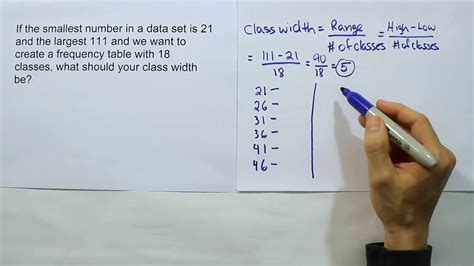 If the smallest number in a data set is 21
and the largest 111 and we want to
create a frequency table with 18
classes, what should your class width
be?
Class width = Range / # of classes = High-Low / # of classes
= 111-21 / 18 = 90 / 18 = 5
21 -
26 -
31 -
36 -
41 -
46 -